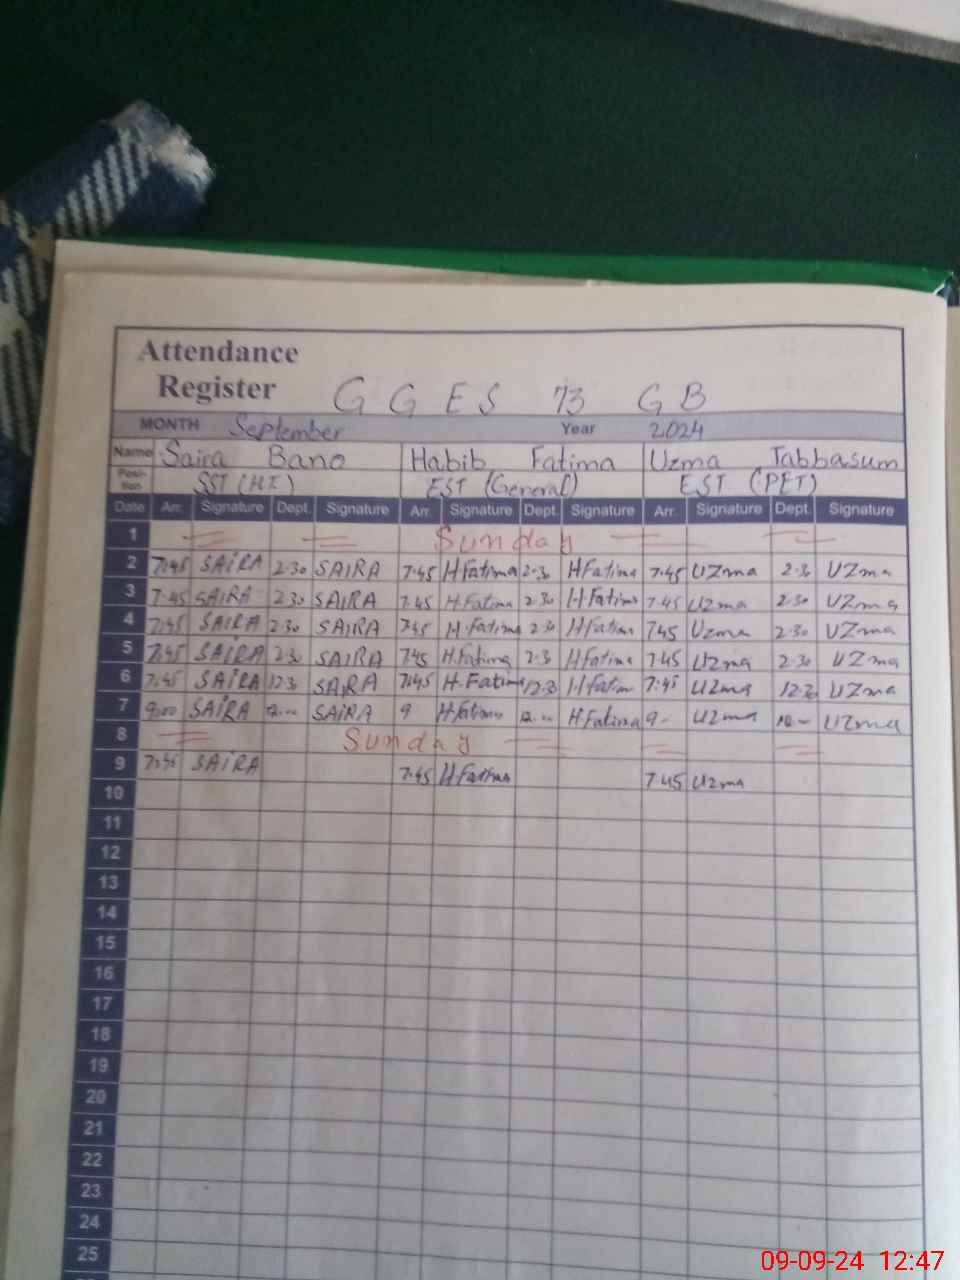 Attendance
Register GGES 73 GB
MONTH September Year 2024
Name Saira Bano Habib Fatima Uzma Tabbasum
Posi-tion SST (H.T) EST (General) EST (PET)
Date Arr. Signature Dept. Signature Arr. Signature Dept. Signature Arr. Signature Dept. Signature
1 Sunday
2 7:45 SAIRA 2:30 SAIRA 7:45 H Fatima 2:30 H Fatima 7:45 Uzma 2:30 Uzma
3 7:45 SAIRA 2:30 SAIRA 7:45 H.Fatima 2:30 H.Fatima 7:45 Uzma 2:30 Uzma
4 7:45 SAIRA 2:30 SAIRA 7:45 H.Fatima 2:30 H.Fatima 7:45 Uzma 2:30 Uzma
5 7:45 SAIRA 2:30 SAIRA 7:45 H.Fatima 2:30 H.Fatima 7:45 Uzma 2:30 Uzma
6 7:45 SAIRA 12:30 SAIRA 7:45 H.Fatima 12:30 H Fatima 7:45 Uzma 12:30 Uzma
7 9:00 SAIRA SAIRA 9 H Fatima H Fatima 9 Uzma Uzma
8 Sunday
9 7:45 SAIRA 7:45 H Fatima 7:45 Uzma
10
11
12
13
14
15
16
17
18
19
20
21
22
23
24
25
09-09-24 12:47